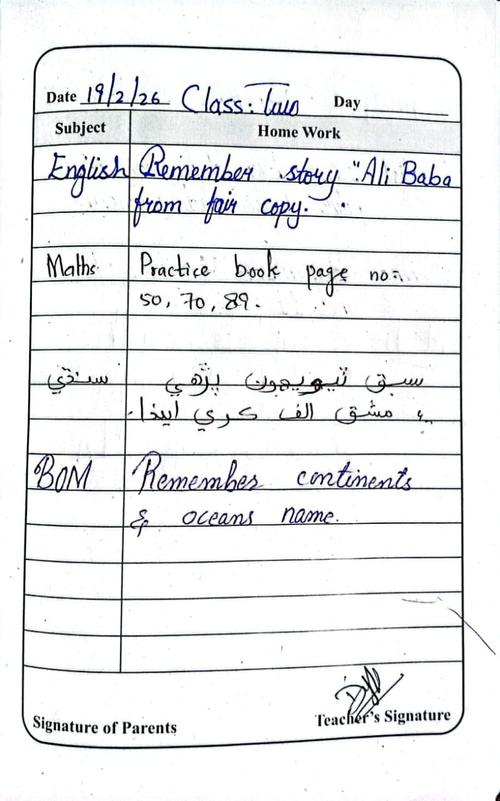 Date 19/2/26 Class: Two Day
Subject Home Work
English Remember story "Ali Baba
from fair copy.
Maths Practice book page no:
50, 70, 89.
سنڌي سبق ٽيويهون پڙهي
۽ مشق الف ڪري ايندا.
BOM Remember continents
& oceans name.
Signature of Parents Teacher's Signature